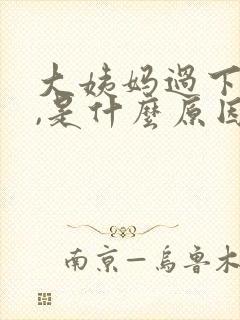 大姨妈過下
,是什麼原因
南京－烏魯木